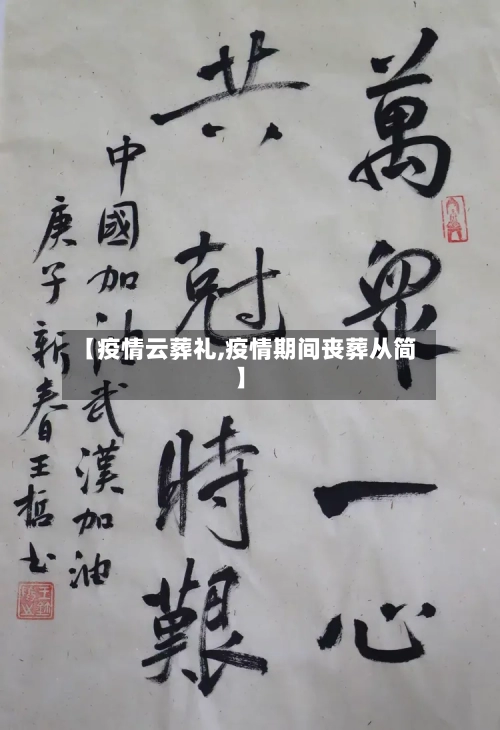 萬眾一心
共尅時艱
中國加油武漢加油
庚子新春王哲书
【疫情云葬礼,疫情期间丧葬从简
】